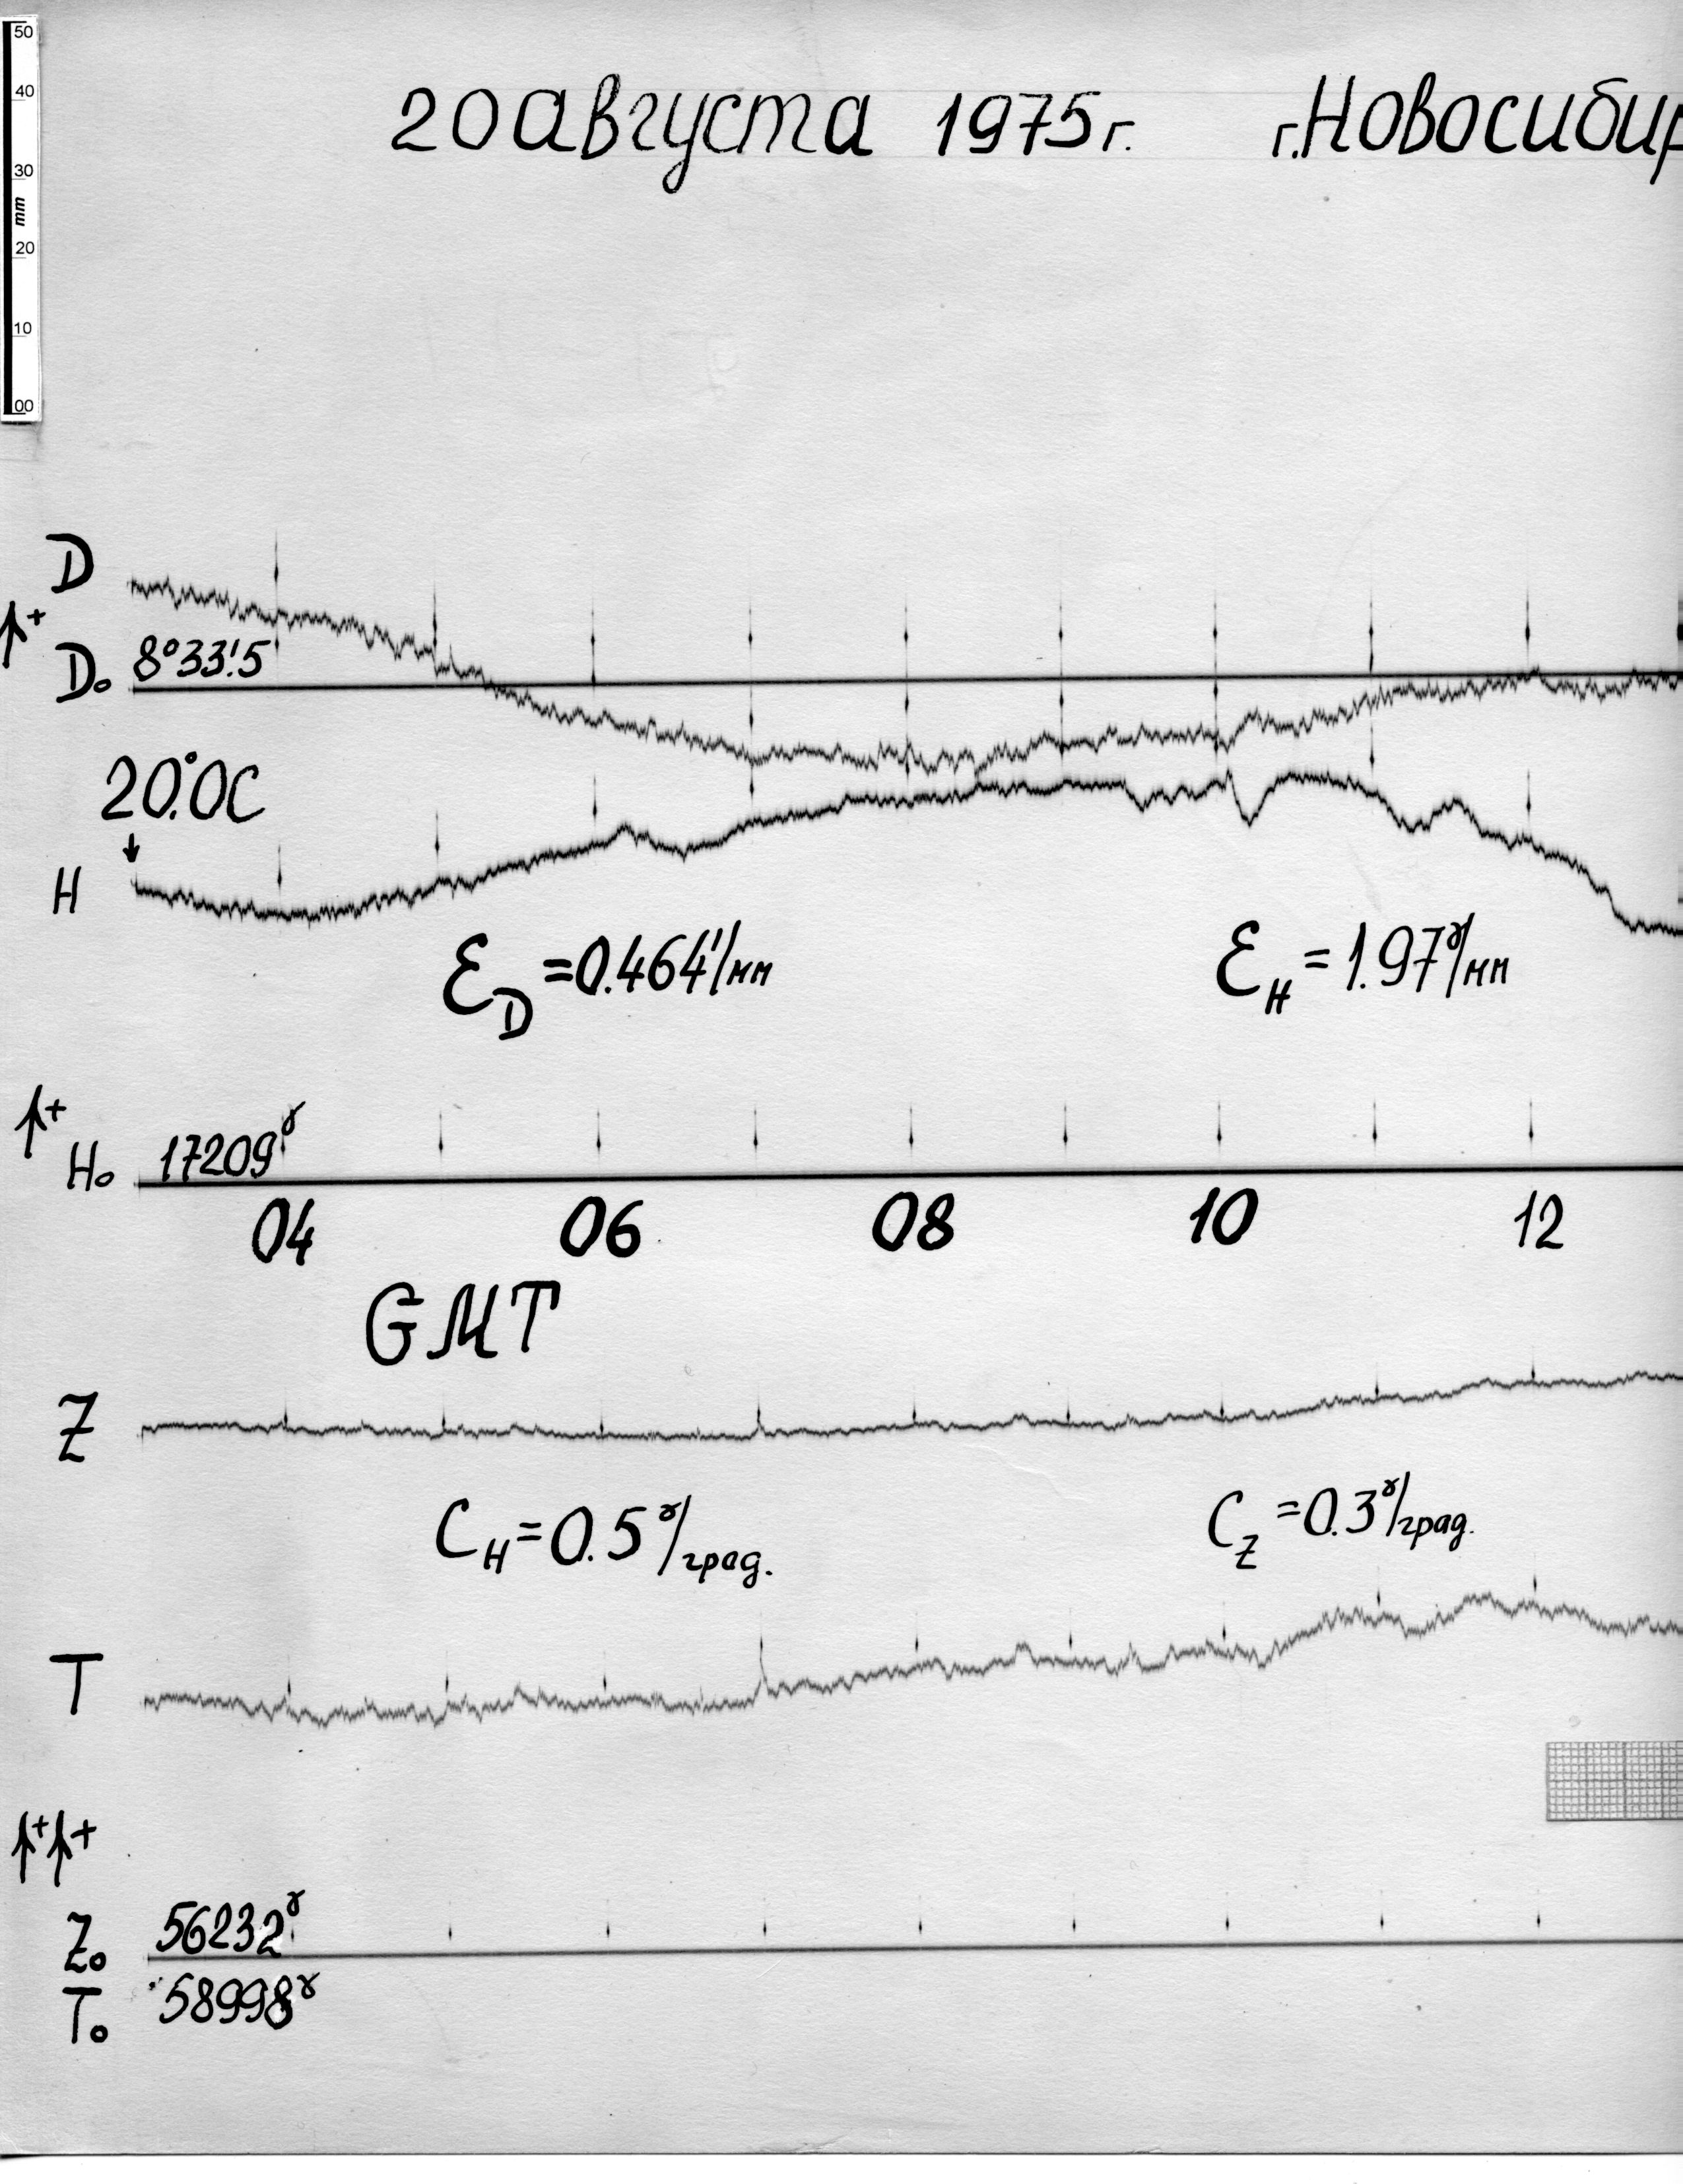 50
40
30
mm
20
10
00
20 августа 1975 г. г. Новосибир
D
+
D₀ 8°33!5
20.°0C
H
Ɛ_D = 0.464'/мм Ɛ_H = 1.97ᵞ/мм
+
H₀ 17209ᵞ
04 06 08 10 12
GMT
Z
C_H = 0.5ᵞ/град. C_Z = 0.3ᵞ/град.
T
+ +
Z₀ 56232ᵞ
T₀ 58998ᵞ